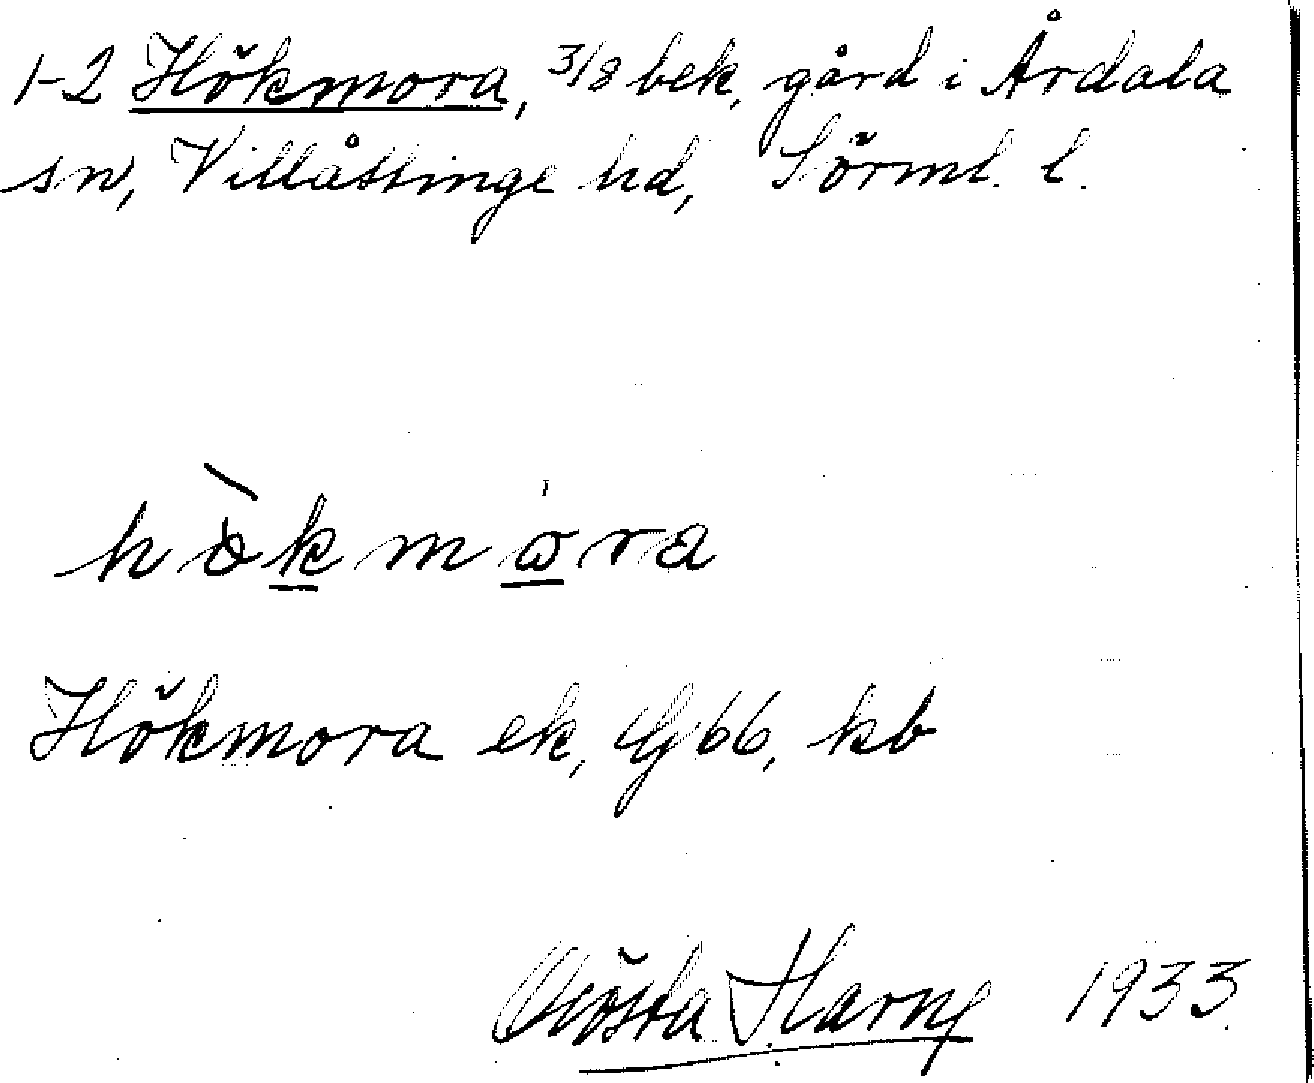 1-2 Hökmora, 3/8 bek. gård i Årdala
sn, Villåttinge hd, Sörml. l.
Hökmora ek, 66, kb
Gösta 1933.